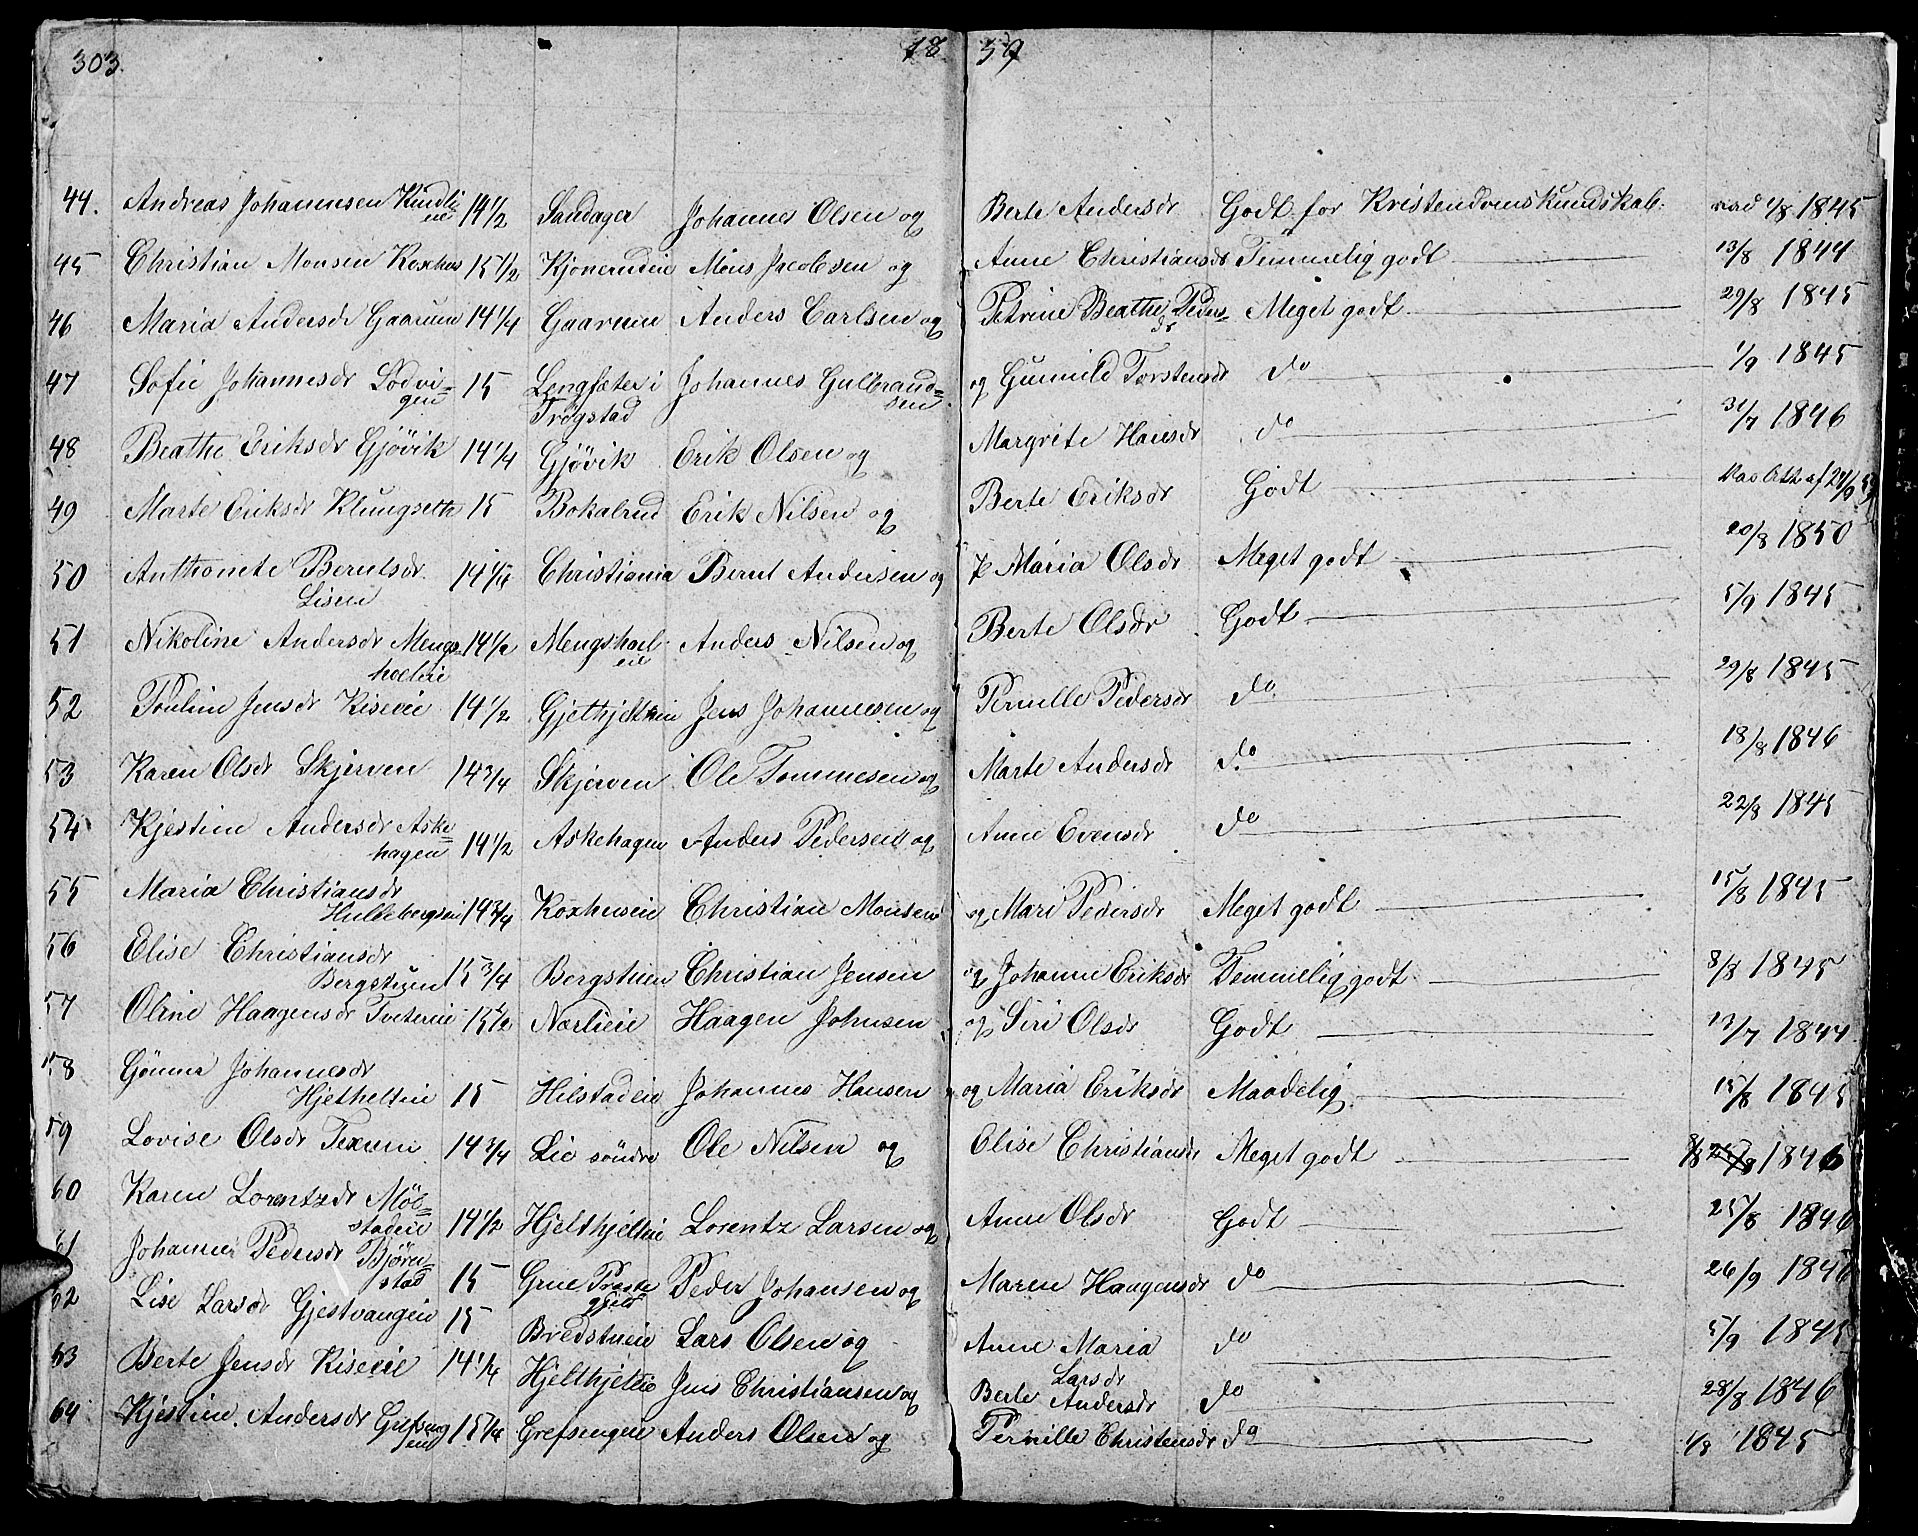 303. 18 59
44. Andreas Johannesen Kindli= 14 1/2 Sandager Johannes Olsen og Berte Andersdr Godt for Kristendomskundskab. 1/8 1845
en
45 Christian Monsen Koxhus 15 1/2 Kjonerudeie Mons Jacobsen og Anne Christiansdr Temmelig godt 13/8 1844
46 Maria Andersdr Gaarum 14 1/4 Gaarum Anders Carlsen og Petrine Beathe Peders= Meget godt 29/8 1845
dr
47 Sofie Johannesdr Lodvi= 15 Lengsæter i Johannes Gulbrand= og Gunnild Torstensdr do 1/9 1845
gen Trøgstad sen
48 Beathe Eriksdr Gjøvik 14 1/4 Gjøvik Erik Olsen og Margrete Hansdr do 31/7 1846
49 Marte Eriksdr Klungseth 15 Bokalrud Erik Nilsen og Berte Eriksdr Godt af 24/9 59
50 Anthonete Berntsdr 14 1/4 Christiania Bernt Andersen og Maria Olsdr Meget godt 20/8 1850
Lisen
51 Nikoline Andersdr Mengs= 14 1/2 Mengshoel= Anders Nilsen og Berte Olsdr Godt 5/9 1845
hoeleie eie
52 Pouline Jensdr Kiseeie 14 1/2 Gjethjelteie Jens Johannesen og Pernille Pedersdr do 29/8 1845
53 Karen Olsdr Skjerven 14 3/4 Skjerven Ole Tommesen og Marte Andersdr do 18/8 1846
54 Kjestine Andersdr Aske= 14 1/2 Askehagen Anders Pedersen og Anne Evensdr do 22/8 1845
hagen
55 Maria Christiansdr
Huldebergseie 14 3/4 Koxhuseie Christian Monsen og Mari Pedersdr Meget godt 15/8 1845
56 Elise Christiansdr
Bergstuen 15 3/4 Bergstuen Christian Jensen og Johanne Eriksdr Temmelig godt 8/8 1845
57 Oline Haagensdr Tveterie 15 1/2 Nærlieie Haagen Johnsen og Siri Olsdr Godt 13/7 1844
58 Gønner Johannesdr
Hjethelteie 15 Hilstadeie Johannes Hansen og Maria Eriksdr Maadelig 15/8 1845
59 Lovise Olsdr Texum 14 3/4 Lie söndre Ole Nilsen og Elise Christiansdr Meget godt 8/8 1846
60 Karen Lorentzdr Möl=
stadeie 14 1/2 Hjelthjelteie Lorentz Larsen og Anne Olsdr Godt 25/8 1846
61 Johanne Pedersdr Bjørn= 15 Grue Præste= Peder Johansen og Maren Haagensdr do 26/9 1845
stad gjeld
62 Lise Larsdr Gjestvangen 15 Bredstueie Lars Olsen og Anne Maria do 5/9 1845
Larsdr
63 Berte Jensdr Kiseeie 14 1/4 Hjelthjelteie Jens Christiansen og Berte Andersdr do 28/8 1846
64 Kjestine Andersdr Grefseng 15 1/4 Grefsengen Anders Olsen og Pernille Christensdr do 1/8 1845